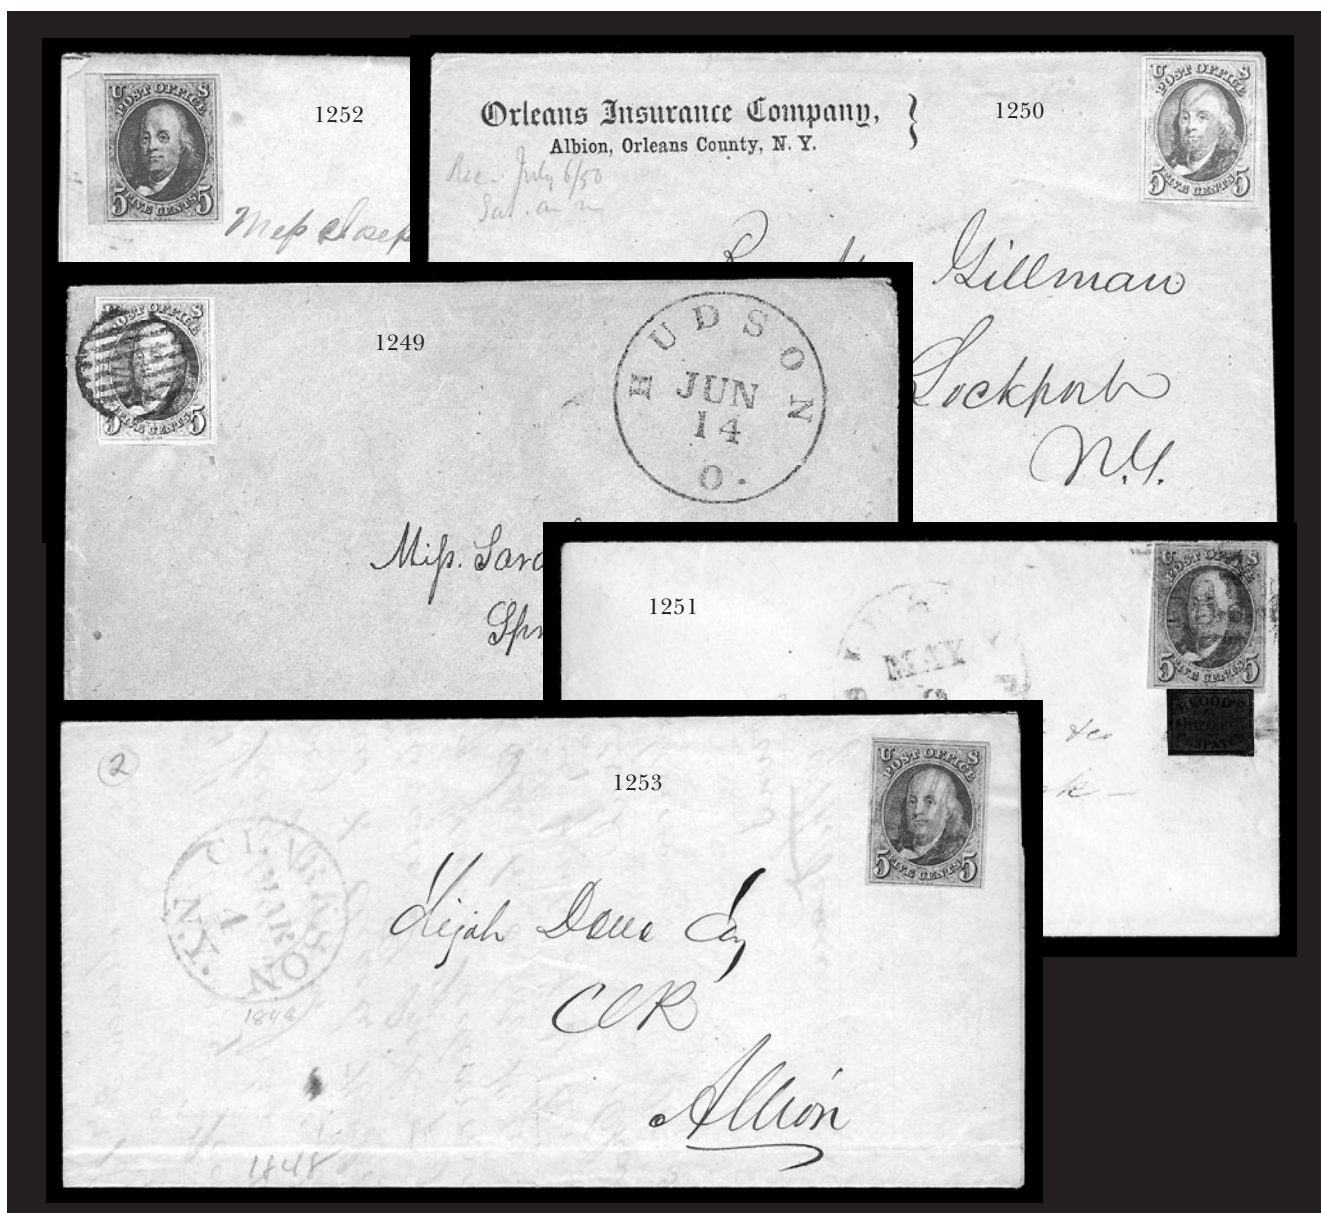 U S
POST OFFICE
5 FIVE CENTS 5
1252
Miss Josep
Orleans Insurance Company,
Albion, Orleans County, N. Y.
Rec. July 6/50
1250
U S
POST OFFICE
5 FIVE CENTS 5
Gillman
Lockport
N.Y.
U S
POST OFFICE
5 FIVE CENTS 5
1249
HUDSON
JUN
14
O.
Miss. Sara
Spr
1251
MAY
U S
POST OFFICE
5 FIVE CENTS 5
BLOOD'S
DESPATCH
& Co
2
1253
U S
POST OFFICE
5 FIVE CENTS 5
CLARKSON
MAR
1
N.Y.
1848
Elijah Dana Esq
Albion
1848